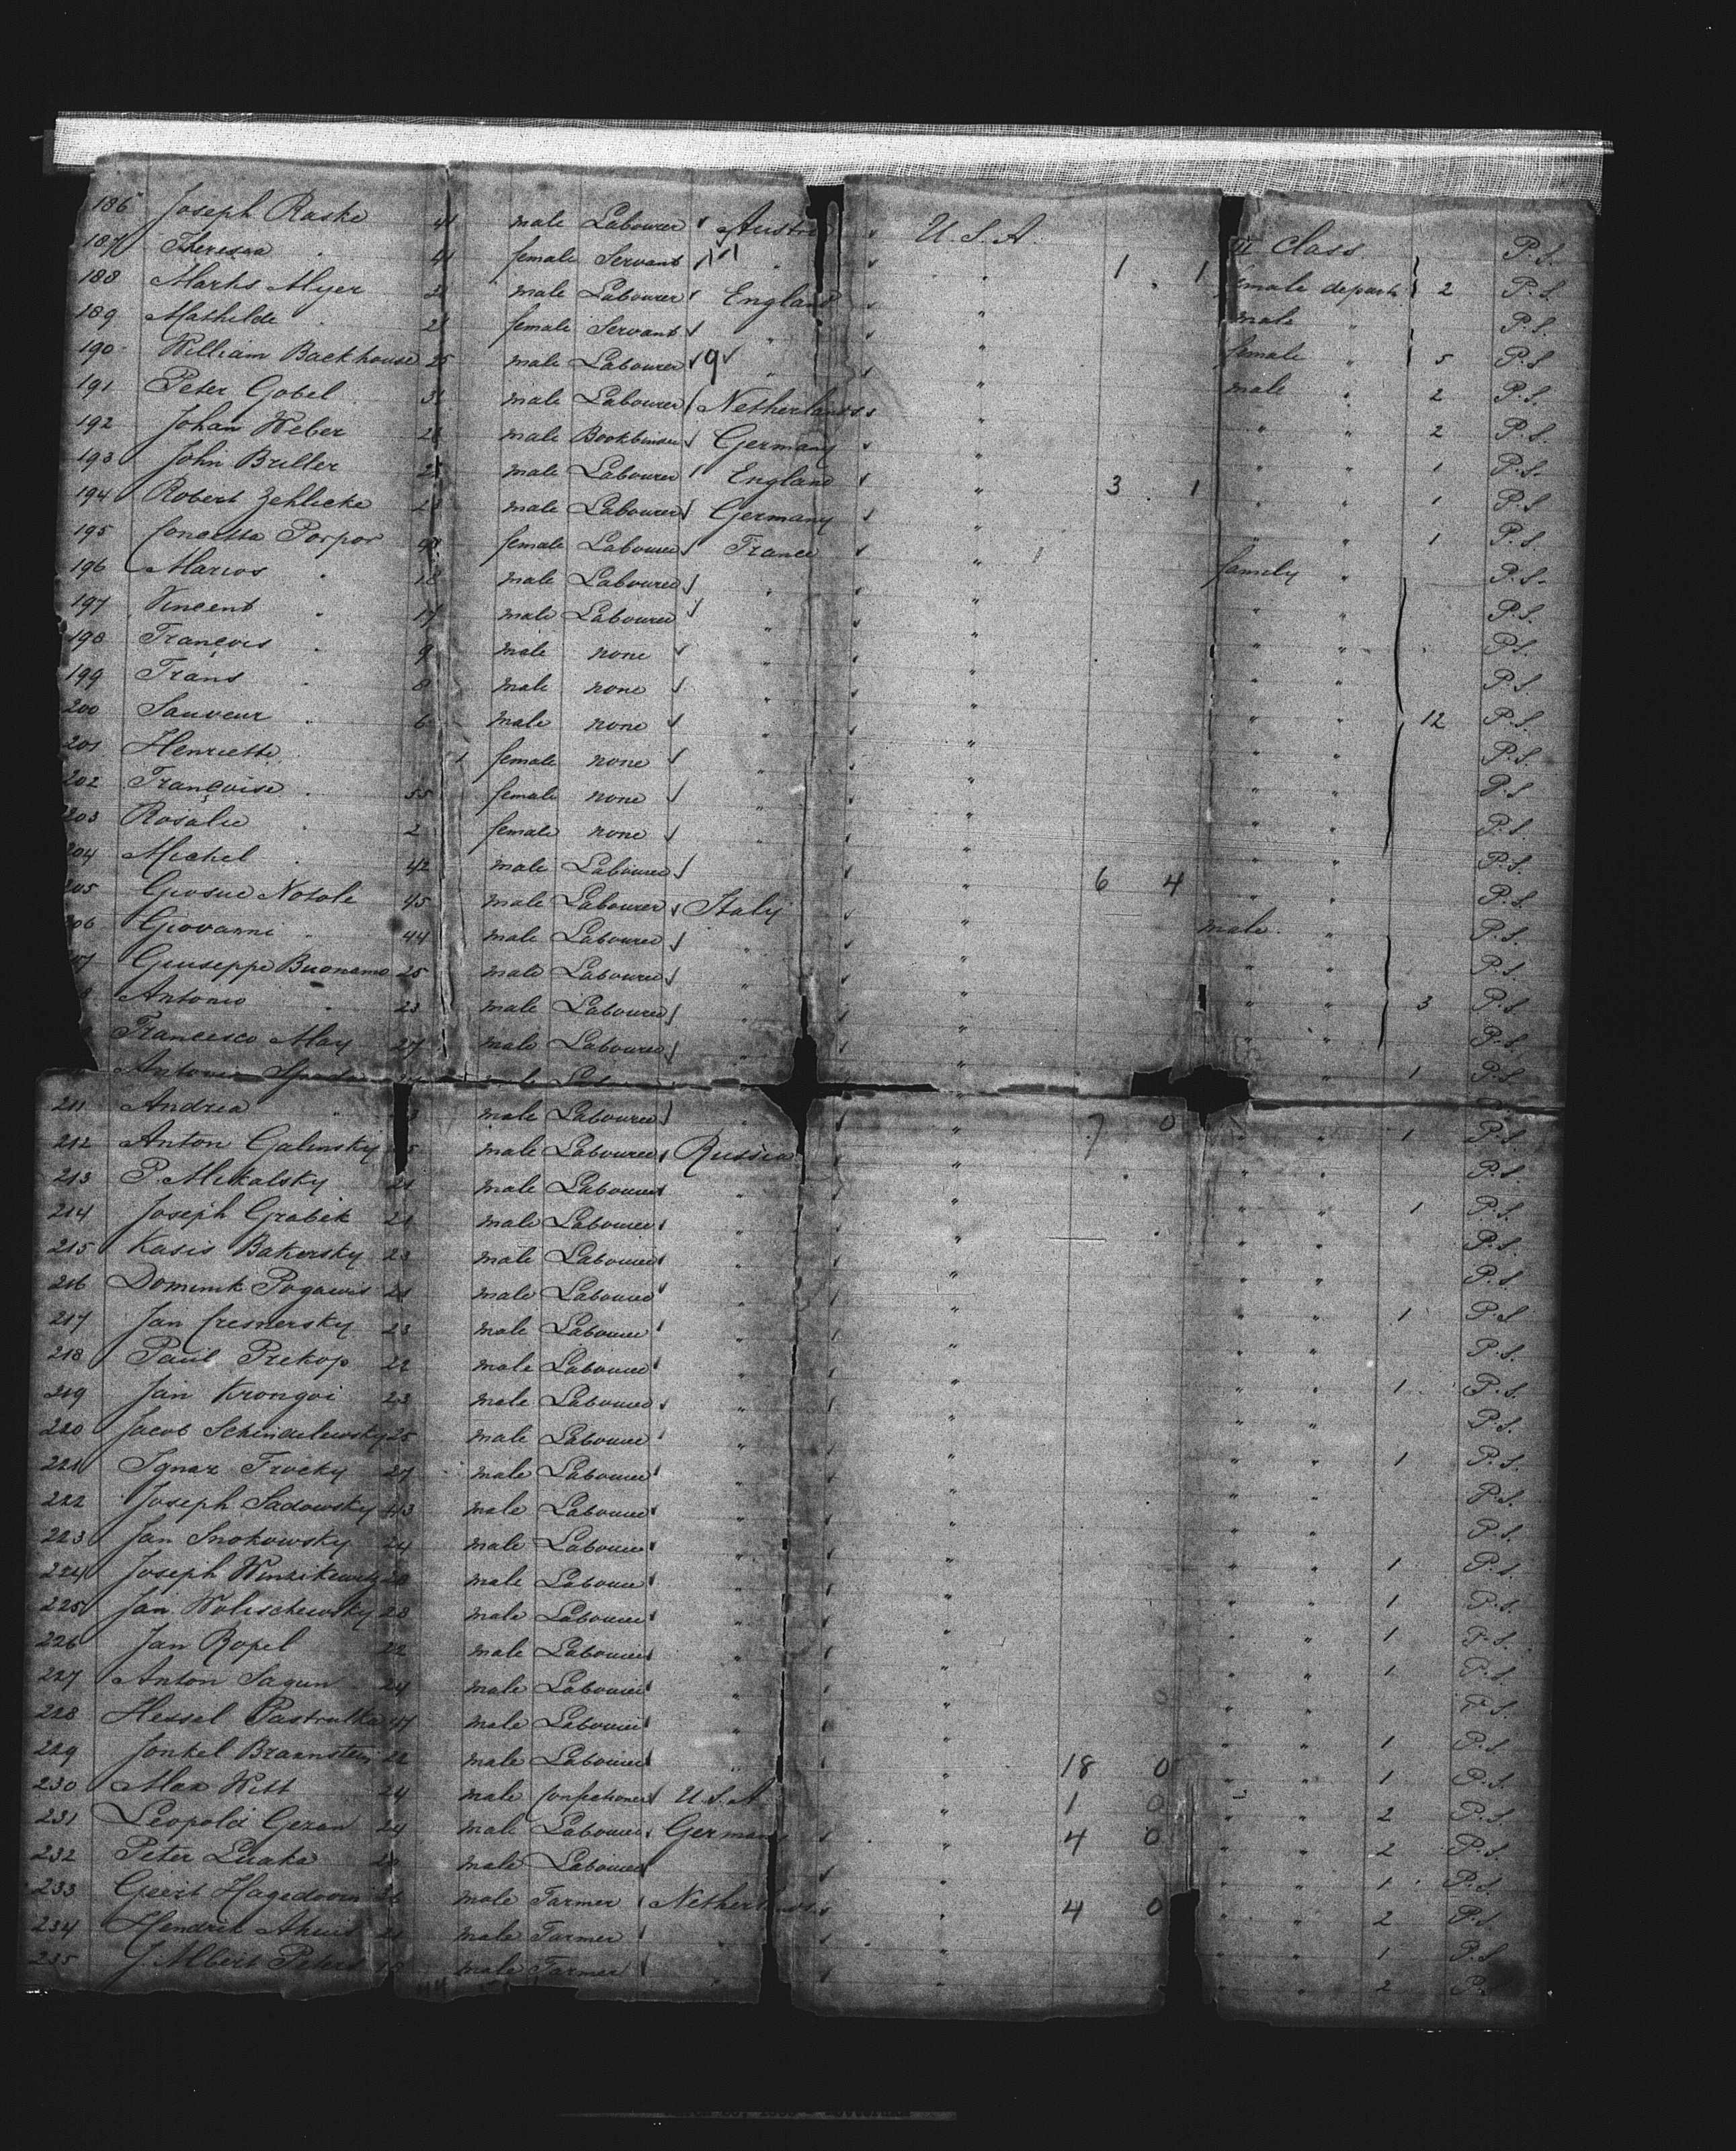 186 Joseph Raske 41 male Labourer Austri U.S.A. II Class P.S.
187 Theresea " 41 female Servant " " 1 1 female depart 2 P.S.
188 Marks Myer 2 male Labourer England " male " P.S.
189 Mathilde " 2 female Servant " " female " 5 P.S.
190 William Backhouse 25 male Labourer 9 " " male " 2 P.S.
191 Peter Gobel 3 male Labourer Netherlands " " " 2 P.S.
192 Johan Weber 2 male Bookbinder Germany " " " 1 P.S.
193 John Buller 25 male Labourer England " 3 1 " " 1 P.S.
194 Robert Zehlicke 23 male Labourer Germany " " " 1 P.S.
195 Concetta Porpor 4 female Labourer France " family " P.S.
196 Marius " 18 male Labourer " " " " P.S.
197 Vincent " 17 male Labourer " " " " P.S.
198 François " 9 male none " " " " P.S.
199 Frans " 8 male none " " " " 12 P.S.
200 Sauveur " 6 male none " " " " P.S.
201 Henriette " female none " " " " P.S.
202 Françoise " 35 female none " " " " P.S.
203 Rosalie " 2 female none " " " " P.S.
204 Michel " 42 male Labourer " 6 4 " " P.S.
205 Giosue Notole 45 male Labourer Italy " male " P.S.
206 Giovanni " 44 male Labourer " " " " P.S.
07 Giuseppe Buonamo 25 male Labourer " " " " 3 P.S.
8 Antonio " 23 male Labourer " " " " P.S.
Francesco May 27 male Labourer " " " 1 P.S.
Antonio
211 Andrea " 3 male Labourer " " 7 0 " " 1 P.S.
212 Anton Galinsky 5 male Labourer Russia " " " P.S.
213 P. Mikalsky 21 male Labourer " " " " 1 P.S.
214 Joseph Grabek 21 male Labourer " " " " P.S.
215 Kasis Bakersky 23 male Labourer " " " " P.S.
216 Dominik Pogawis 21 male Labourer " " " " 1 P.S.
217 Jan Cresnersky 23 male Labourer " " " " P.S.
218 Paul Prekop 22 male Labourer " " " " 1 P.S.
219 Jan Krongoi 23 male Labourer " " " " P.S.
220 Jacob Schindelewsky 25 male Labourer " " " " 1 P.S.
221 Ignaz Trocky 27 male Labourer " " " " P.S.
222 Joseph Sadowsky 43 male Labourer " " " " P.S.
223 Jan Snokowsky 24 male Labourer " " " " 1 P.S.
224 Joseph Winzikewitz 28 male Labourer " " " " 1 P.S.
225 Jan Wolischewsky 28 male Labourer " " " " 1 P.S.
226 Jan Ropel 22 male Labourer " " " " 1 P.S.
227 Anton Sagun 24 male Labourer " " " " P.S.
228 Hessel Pastrulka 47 male Labourer " " " " 1 P.S.
229 Jonkel Braunstein 22 male Labourer " " 18 0 " " 1 P.S.
230 Max Witt 24 male Confectioner U.S.A. " 1 0 " " 2 P.S.
231 Leopold Gezan 24 male Labourer Germany " 4 0 " " 2 P.S.
232 Peter Luaka 20 male Labourer " " " 1 P.S.
233 Geert Hagedoorn 36 male Farmer Netherlands " 4 0 " " 2 P.S.
234 Hendrik Ahuis 21 male Farmer " " " " 1 P.S.
235 J. Albert Peters 18 male Farmer " " " " 2 P.S.